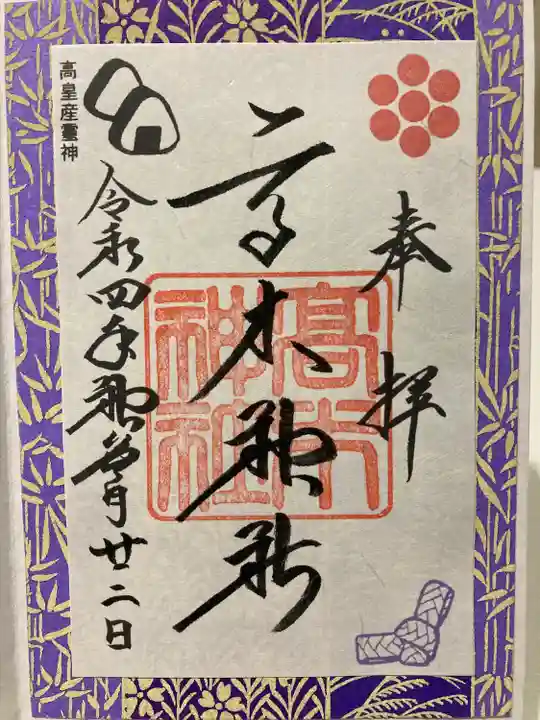 奉拝
高木神社
高木神社
令和四年神無月廿二日
高皇産霊神